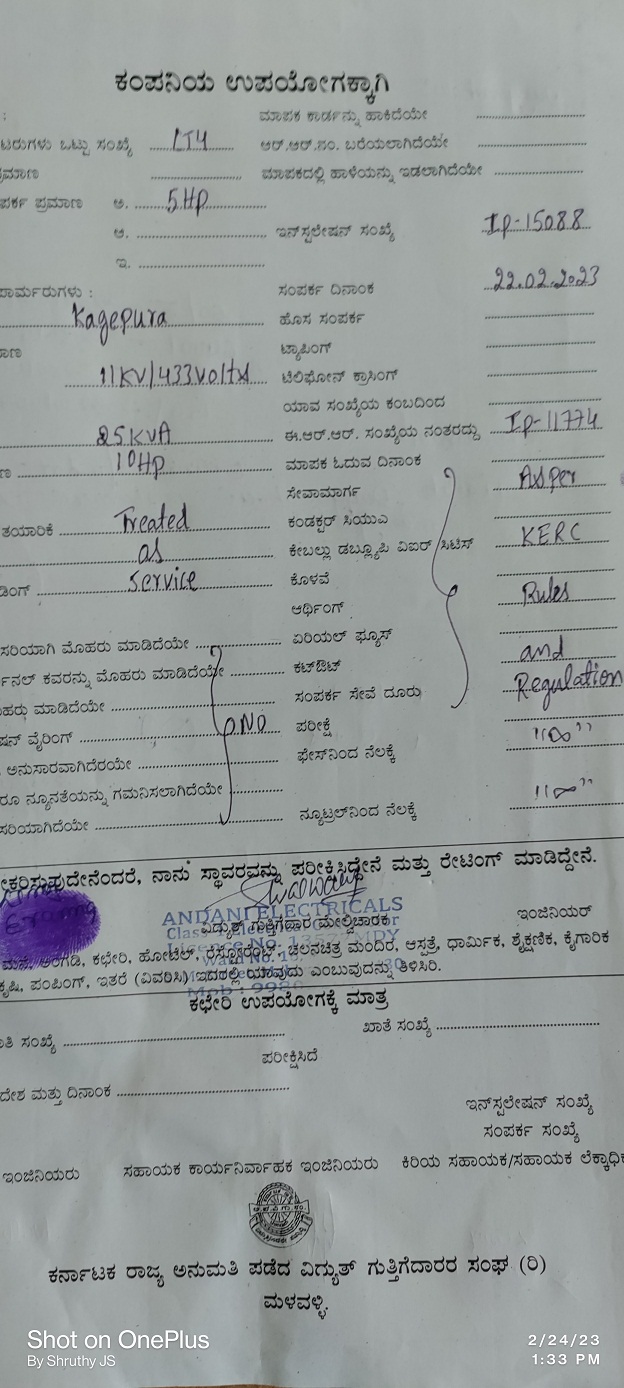 ಕಂಪನಿಯ ಉಪಯೋಗಕ್ಕಾಗಿ
: ಮಾಪಕ ಕಾರ್ಡನ್ನು ಹಾಕಿದೆಯೇ
ಟರುಗಳು ಒಟ್ಟು ಸಂಖ್ಯೆ LT4 ಆರ್.ಆರ್.ನಂ. ಬರೆಯಲಾಗಿದೆಯೇ
ಪ್ರಮಾಣ ಮಾಪಕದಲ್ಲಿ ಹಾಳೆಯನ್ನು ಇಡಲಾಗಿದೆಯೇ
ಪರ್ಕ ಪ್ರಮಾಣ ಅ. 5HP
ಆ. ಇನ್‌ಸ್ಟಲೇಷನ್ ಸಂಖ್ಯೆ IP-15088
ಇ.
ಪಾರ್ಮರುಗಳು : ಸಂಪರ್ಕ ದಿನಾಂಕ 22.02.2023
Kagepura ಹೊಸ ಸಂಪರ್ಕ
ಾಣ ಟ್ಯಾಪಿಂಗ್
11KV/433volts ಟೆಲಿಫೋನ್ ಕ್ರಾಸಿಂಗ್
ಯಾವ ಸಂಖ್ಯೆಯ ಕಂಬದಿಂದ
25KVA ಈ.ಆರ್.ಆರ್. ಸಂಖ್ಯೆಯ ನಂತರದ್ದು IP-11774
ಣ 10HP ಮಾಪಕ ಓದುವ ದಿನಾಂಕ
ಸೇವಾಮಾರ್ಗ Asper
ತಯಾರಿಕೆ Treated ಕಂಡಕ್ಟರ್ ಸಿಯುಎ
as ಕೇಬಲ್ಲು ಡಬ್ಲ್ಯೂಪಿ ವಿಐರ್ ಸಿಟಿಸ್ KERC
ಡಿಂಗ್ Service ಕೊಳವೆ
ಆರ್ಥಿಂಗ್ Rules
ಸರಿಯಾಗಿ ಮೊಹರು ಮಾಡಿದೆಯೇ ಏರಿಯಲ್ ಫ್ಯೂಸ್
ರ್ನಲ್ ಕವರನ್ನು ಮೊಹರು ಮಾಡಿದೆಯೇ ಕಟ್‌ಔಟ್ and
ಹರು ಮಾಡಿದೆಯೇ ಸಂಪರ್ಕ ಸೇವೆ ದೂರು Regulation
ಷನ್ ವೈರಿಂಗ್ NO ಪರೀಕ್ಷೆ
ಅನುಸಾರವಾಗಿದೆರಯೇ ಫೇಸ್‌ನಿಂದ ನೆಲಕ್ಕೆ
ರೂ ನ್ಯೂನತೆಯನ್ನು ಗಮನಿಸಲಾಗಿದೆಯೇ
ಸರಿಯಾಗಿದೆಯೇ ನ್ಯೂಟ್ರಲ್‌ನಿಂದ ನೆಲಕ್ಕೆ
ೀಕರಿಸುವುದೇನೆಂದರೆ, ನಾನು ಸ್ಥಾವರವನ್ನು ಪರೀಕ್ಷಿಸಿದ್ದೇನೆ ಮತ್ತು ರೇಟಿಂಗ್ ಮಾಡಿದ್ದೇನೆ.
ANDANI ELECTRICALS
ವಿದ್ಯುತ್ ಗುತ್ತಿಗೆದಾರ ಮೇಲ್ವಿಚಾರಕ ಇಂಜಿನಿಯರ್
ಮನೆ, ಅಂಗಡಿ, ಕಛೇರಿ, ಹೋಟೆಲ್, ರೆಸ್ಟೋರೆಂಟ್, ಚಲನಚಿತ್ರ ಮಂದಿರ, ಆಸ್ಪತ್ರೆ, ಧಾರ್ಮಿಕ, ಶೈಕ್ಷಣಿಕ, ಕೈಗಾರಿಕ
ಕೃಷಿ, ಪಂಪಿಂಗ್, ಇತರೆ (ವಿವರಿಸಿ) ಇದರಲ್ಲಿ ಯಾವುದು ಎಂಬುವುದನ್ನು ತಿಳಿಸಿರಿ.
ಕಛೇರಿ ಉಪಯೋಗಕ್ಕೆ ಮಾತ್ರ
ತಿ ಸಂಖ್ಯೆ ಖಾತೆ ಸಂಖ್ಯೆ
ಪರೀಕ್ಷಿಸಿದೆ
ದೇಶ ಮತ್ತು ದಿನಾಂಕ
ಇನ್‌ಸ್ಟಲೇಷನ್ ಸಂಖ್ಯೆ
ಸಂಪರ್ಕ ಸಂಖ್ಯೆ
ಇಂಜಿನಿಯರು ಸಹಾಯಕ ಕಾರ್ಯನಿರ್ವಾಹಕ ಇಂಜಿನಿಯರು ಕಿರಿಯ ಸಹಾಯಕ/ಸಹಾಯಕ ಲೆಕ್ಕಾಧಿಕ
ಕರ್ನಾಟಕ ರಾಜ್ಯ ಅನುಮತಿ ಪಡೆದ ವಿದ್ಯುತ್ ಗುತ್ತಿಗೆದಾರರ ಸಂಘ (ರಿ)
ಮಳವಳ್ಳಿ.
Shot on OnePlus
By Shruthy JS
2/24/23
1:33 PM